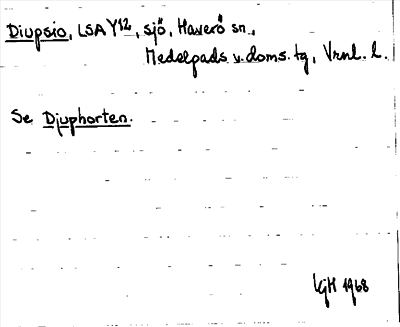 Diupsio, LSA Y12, sjö, Haverö sn.,
Medelpads v. doms. tg, Vrnl. l.
Se Djuphorten.
LGH 1968